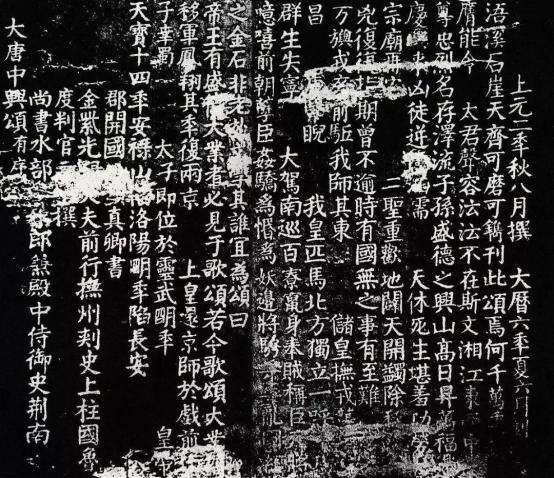 大唐中興頌有序
尚書水部郎兼殿中侍御史荊南
度判官元撰
金紫光大夫前行撫州刺史上柱國魯
郡開國真卿書
天寶十四年安祿山陷洛陽明年陷長安
子幸蜀 太子即位於靈武明年 皇帝
移軍鳳翔其年復兩京 上皇還京師於戲前
帝王有盛大業者必見于歌頌若今歌頌大業
之金石非老於文學其誰宜為頌曰
噫嘻前朝孽臣姦驕為惛為妖邊將騁亂國
群生失寧 大駕南巡百寮竄身奉賊稱臣將
昌睨 我皇匹馬北方獨立一呼
万旟戎卒前駈我師其東 儲皇撫戎蕩
兇復復指期曾不逾時有國無之事有至難
宗廟再安 二聖重歡地闢天開蠲除祅
慶大來凶徒逆儔涵濡 天休死生堪羞功勞
尊忠烈名存澤流子孫盛德之興山高日昇萬福
膺能令 大君聲容沄沄不在斯文湘江東西中
浯溪石崖天齊可磨可鐫刊此頌焉何千萬年
上元二年秋八月撰 大曆六年夏六月刻